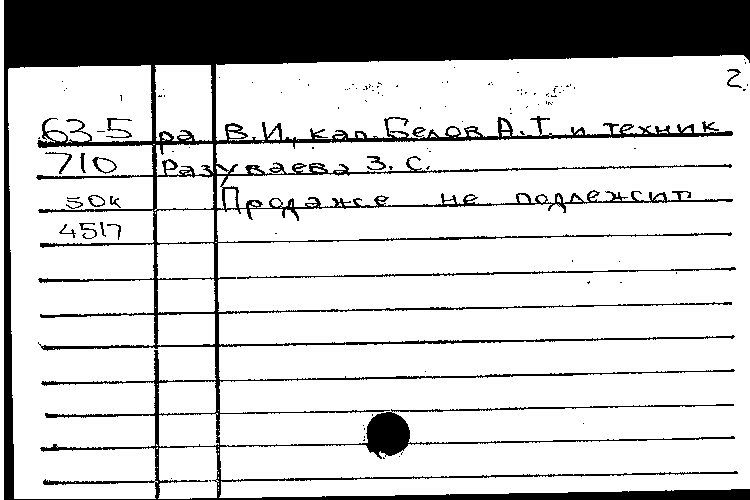 2
63-5 ра В.И., кап. Белов А.Т. и техник
710 Разуваева З. С.
50к Продаже не подлежит
4517